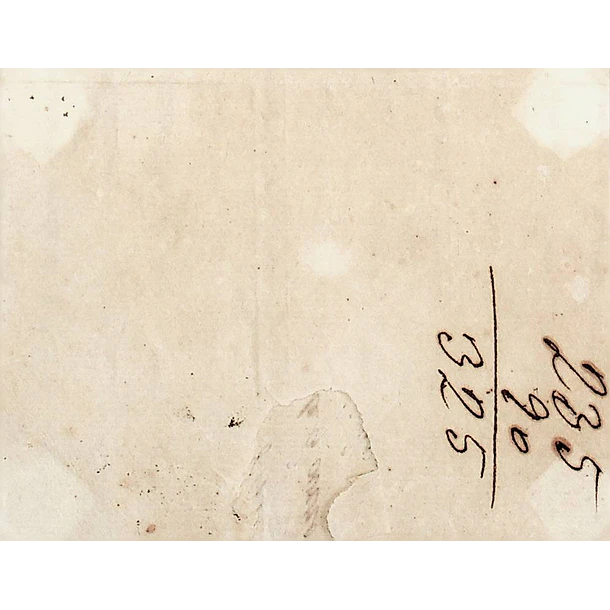 235
90
325